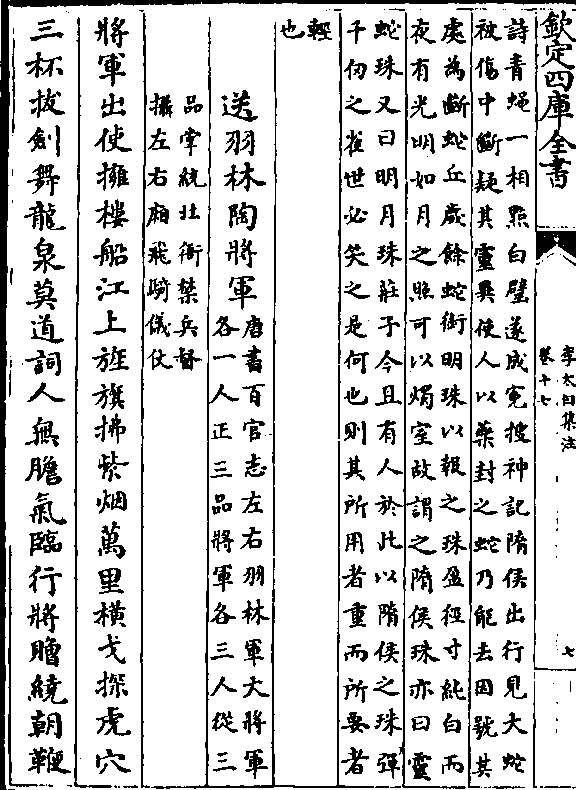 欽定四庫全書
李太白集注
卷十七
七
詩青蠅一相㸃白璧遂成寃搜神記隋侯出行見大蛇
被傷中斷疑其靈異使人以藥封之蛇乃能去因號其
處為斷蛇丘歲餘蛇銜明珠以報之珠盈徑寸純白而
夜有光明如月之照可以燭室故謂之隋侯珠亦曰靈
蛇珠又曰明月珠莊子今且有人於此以隋侯之珠彈
千仞之雀世必笑之是何也則其所用者重而所要者
輕
也
送羽林陶將軍
唐書百官志左右羽林軍大將軍
各一人正三品將軍各三人從三
品掌統北衙禁兵督
攝左右廂飛騎儀仗
將軍出使擁樓船江上旌旗拂紫烟萬里橫戈探虎穴
三杯拔劍舞龍泉莫道詞人無膽氣臨行將贈繞朝鞭